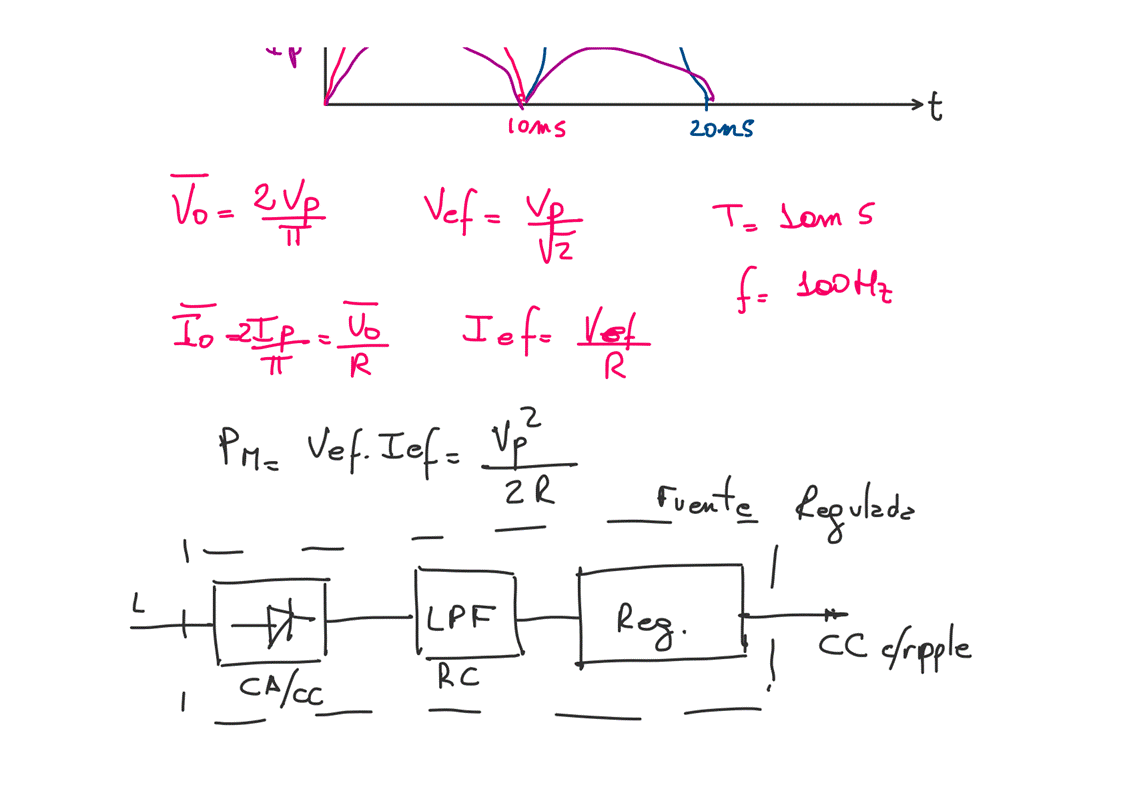 Ip
t
10ms 20ms
V̅o = 2Vp/π Vef = Vp/√2 T= 10m S
f= 100Hz
I̅o = 2Ip/π = V̅o/R Ief = Vef/R
PM= Vef. Ief = Vp²/2R
Fuente Regulada
L LPF Reg.
CC c/ripple
CA/CC RC